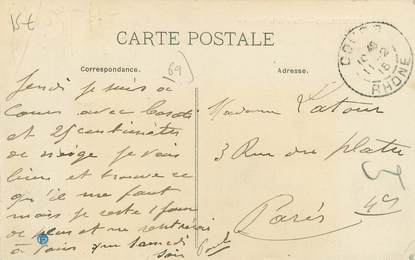 15t
CARTE POSTALE
Correspondance.
69
Adresse.
COURS
10 45
11 12
15
RHONE
Jeudi je suis à
Cours avec
et 25 centimètres
de neige je vais
bien et trouve ce
qu'il me faut
mais je reste 1 jour
de plus et ne rentrerai
à Paris que samedi
soir
Madame Latour
3 Rue du platre
Paris
4e